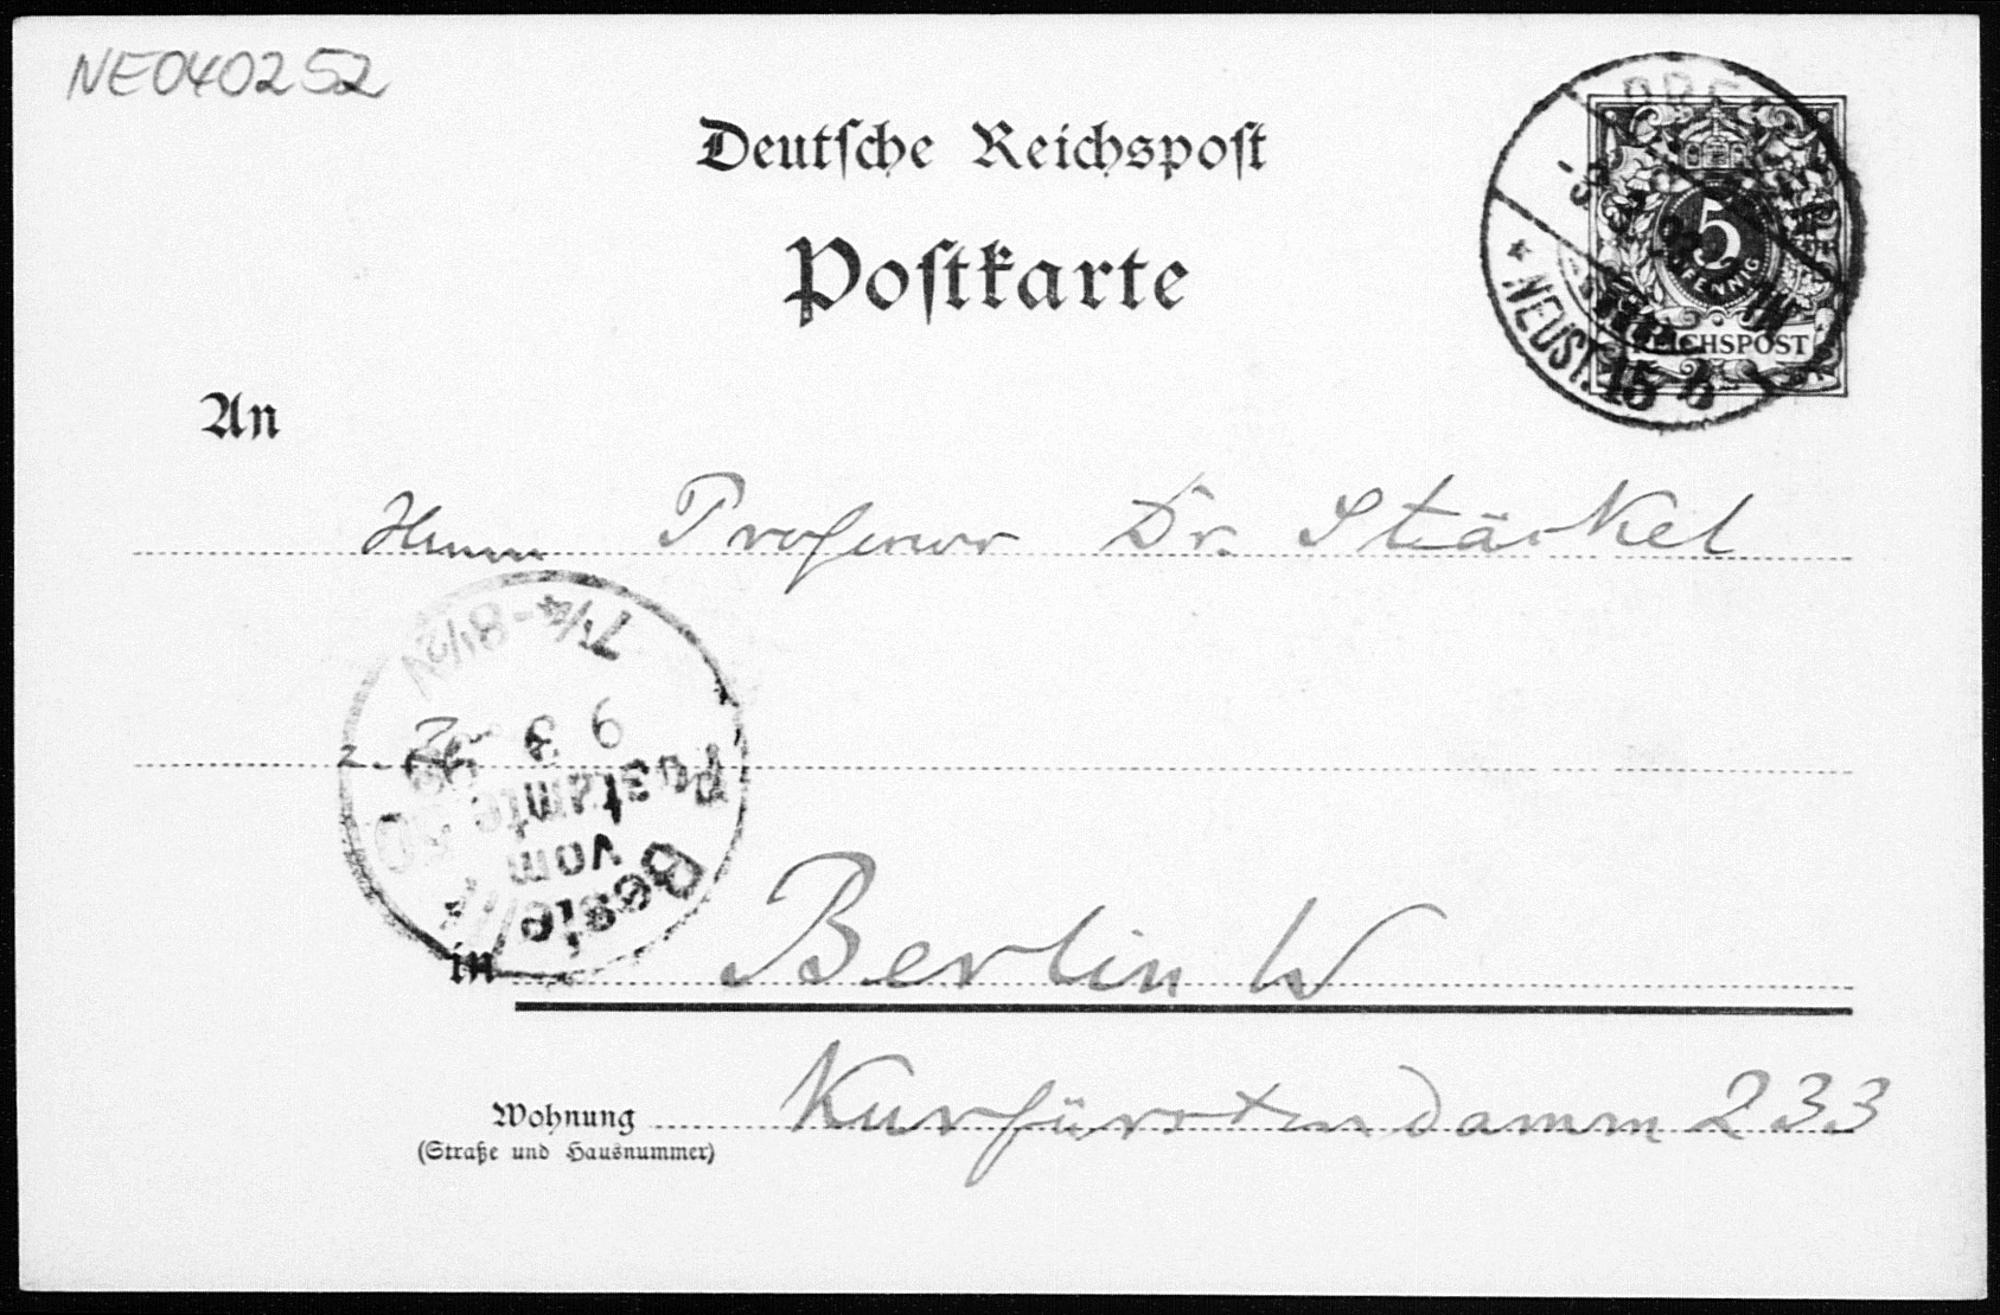 NE040252
Deutsche Reichspost
Postkarte
5
PFENNIG
REICHSPOST
* NEUST. 15 b
An
Herrn Professor Dr. Stäckel
z. Z.
7¼-8½N
9 3
Postamte 50
vom
Bestellt
in Berlin W
Wohnung Kurfürstendamm 233
(Straße und Hausnummer)